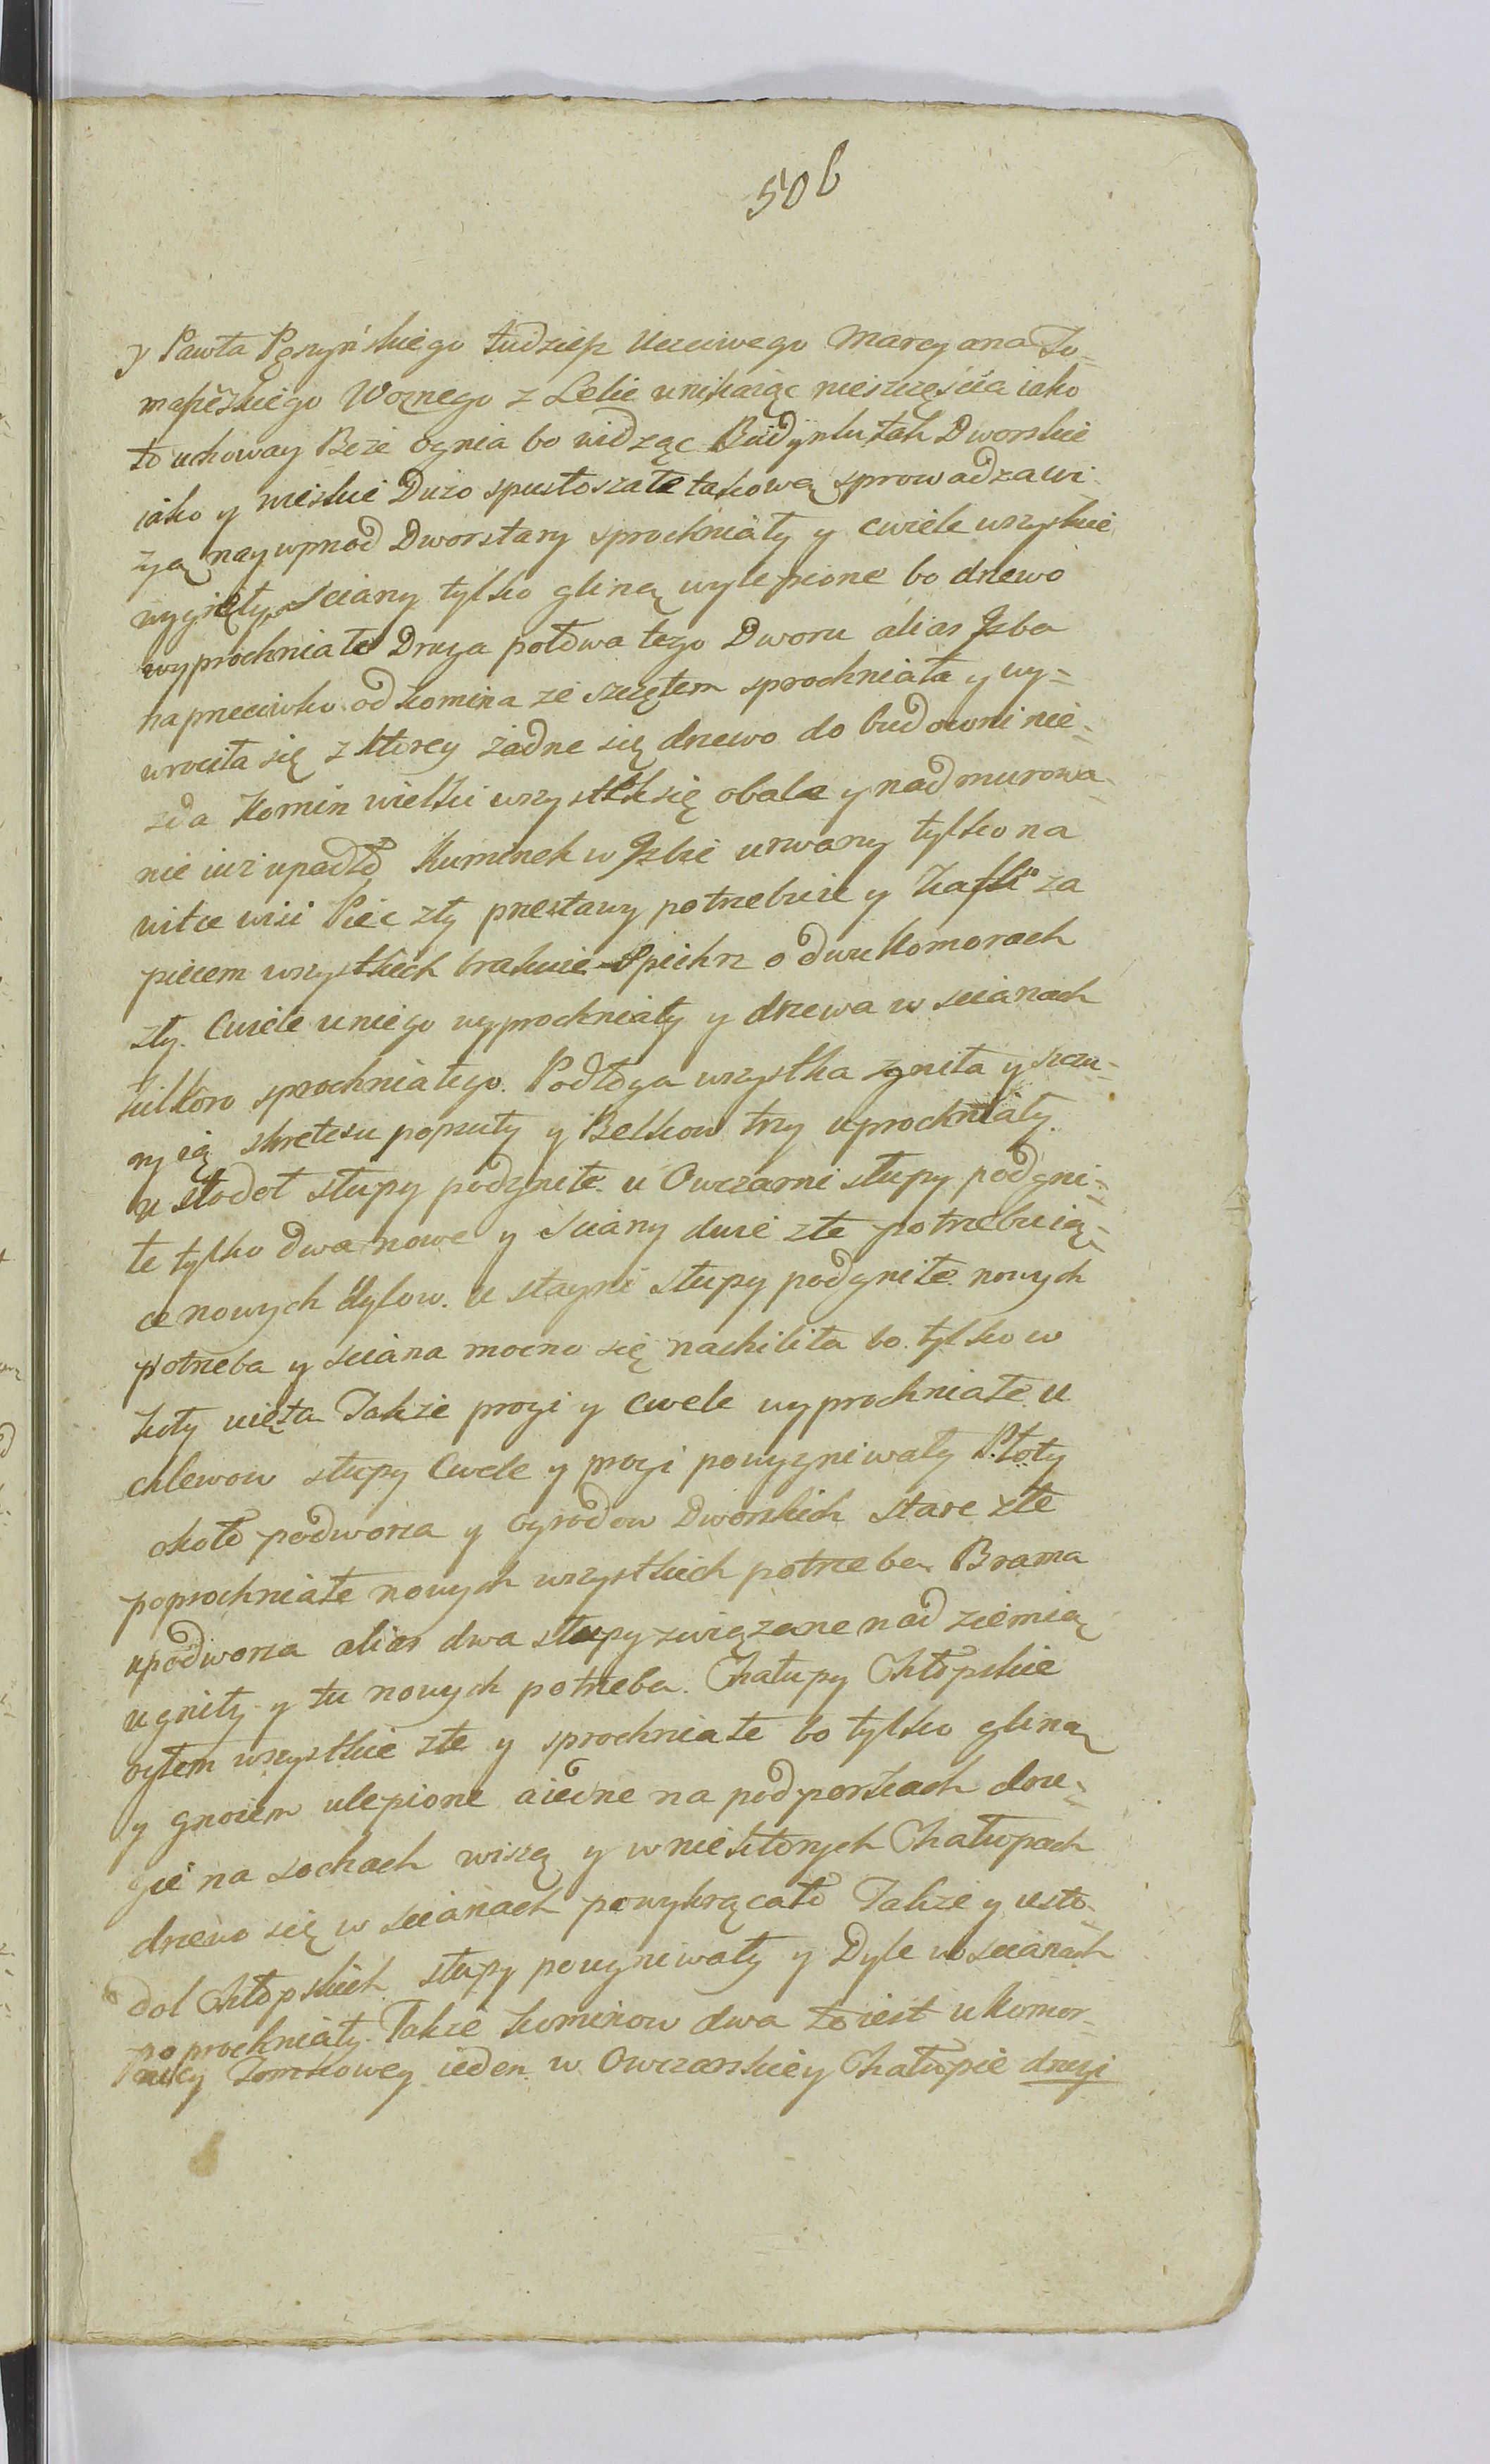 50b
y Pawła Pęszyńskiego tudzież Uczciwego Marcyana To-
maszewskiego Woznego z Lelic unikaiąc nieszczęścia iako
to uchoway Boże ognia bo widząc Budynku tak Dworskie
iako y wieskie Dużo spustoszałe takową sprowadza wi-
zyą naywprzod Dwor stary sprochniały y cwiele wszystkie
wygniły Sciany tylko gliną wylepione bo drzewo
wyprochniałe Druga połowa tego Dworu alias Izba
naprzeciwko od komina ze szczętem sprochniała y wy=
wrociła się z ktorey żadne się drzewo do budowni nie=
zda Komin wielki wszystek się obala y nad murowa-
nie iuż upadło Kuminek w Izbie urwany tylko na
witce wisi Piec zły przestawy potrzebuie y Kafli za
piecem wszystkich brakuie Spichrz o dwu Komorach
zły. Cwiele u niego wyprochniały y drzewa w scianach
kilkoro sprochniałego. Podłoga wszystka zgniła y szczu-
ry ią skretesu popsuły y Belkow trzy uprochniały.
u Stodoł słupy podgniłe u Owczarni słupy podgni=
łe tylko dwa nowe y Sciany dwie złe potrzebuią=
ce nowych Dylow. U stayni słupy podgniłe nowych
potrzeba y sciana mocno się nachiliła bo tylko w
koły uięta Także progi y Cwele wyprochniałe u
chlewow słupy Cwele y progi powygniwały Płoty
około podworza y ogrodow Dworskich stare złe
poprochniałe nowych wszystkich potrzeba. Brama
u podworza alias dwa słupy związane nad ziemią
ugniły y tu nowych potrzeba. Chałupy Chłopskie
ogłem wszystkie złe y sprochniałe bo tylko gliną
y gnoiem ulepione a iedne na podporkach dru=
gie na sochach wiszą y w niektorych Chałupach
drzewo się w scianach powykrącało Także y u sto-
doł Chłopskich słupy powygniwały y Dyle w scianach
poprochniały. Także kominow dwa to iest u Komor-
nicy Tomkowey ieden w Owczarskiey Chałupie drugi